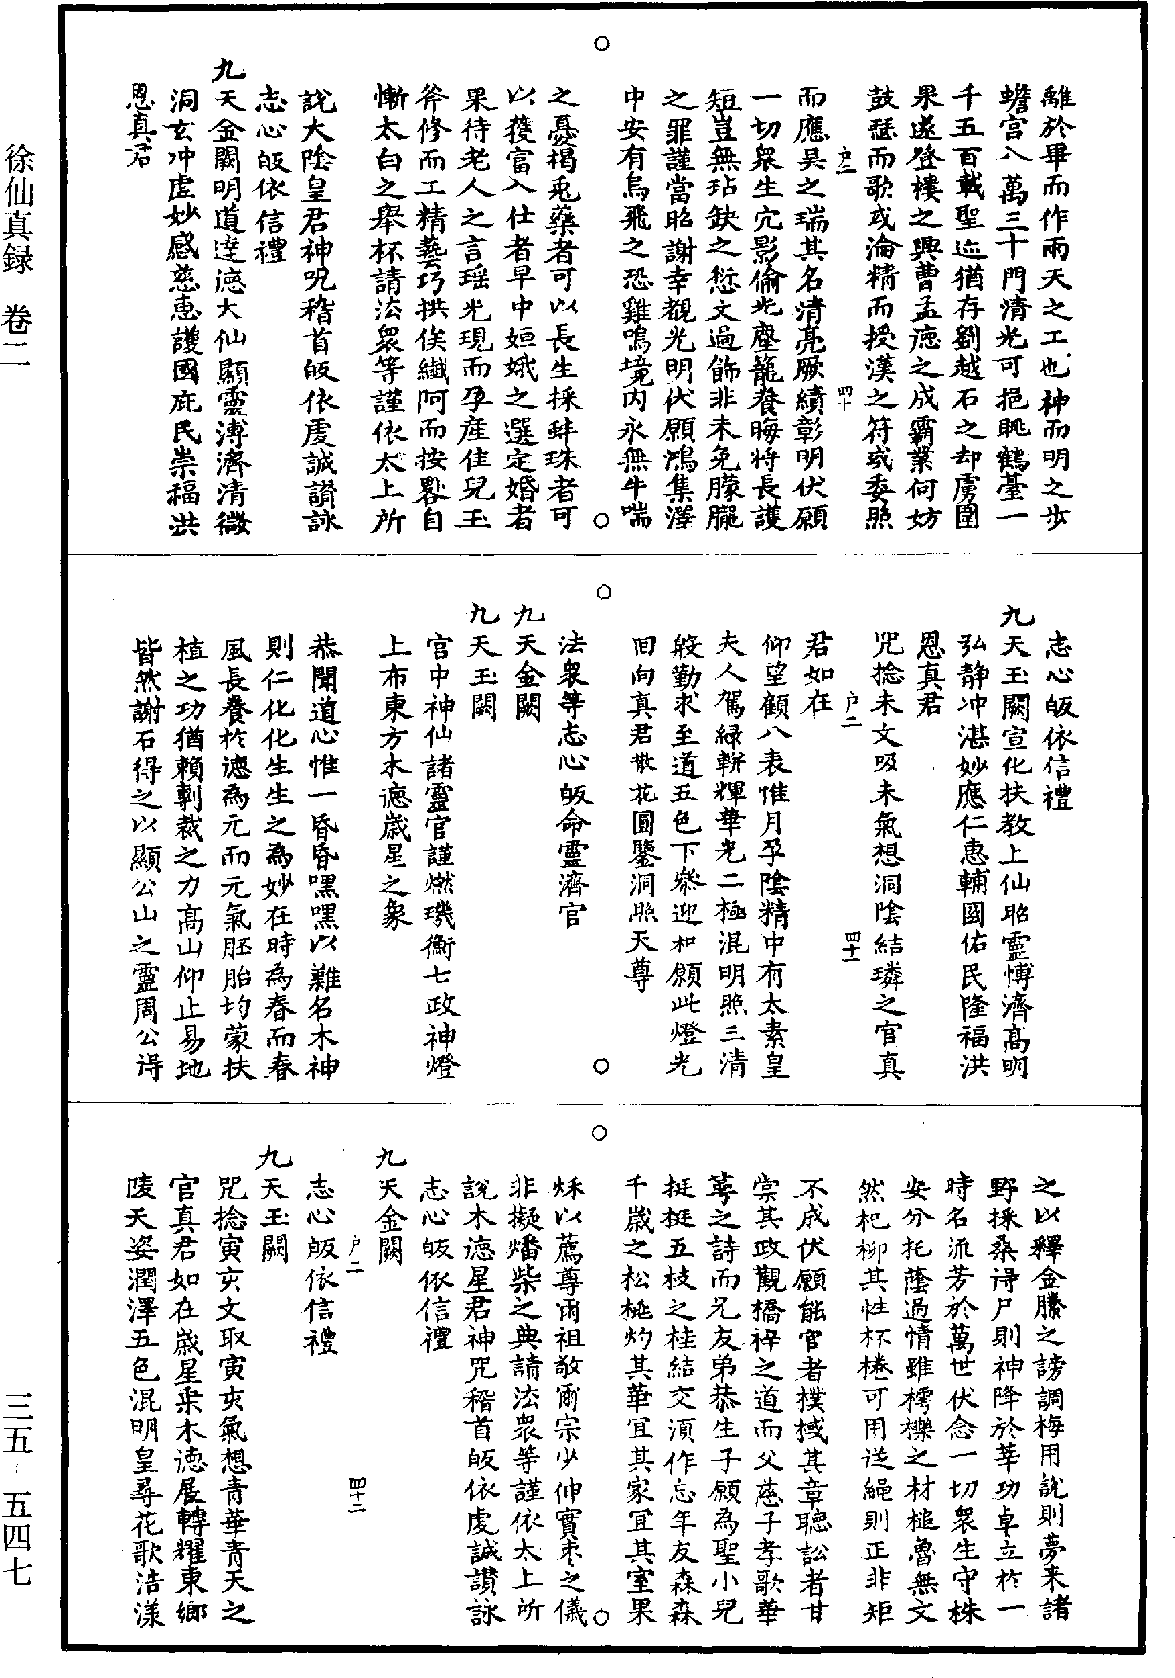 徐仙真録　卷二
離於畢而作雨天之工也神而明之步
蟾宮八萬三十門清光可挹眺鶴臺一
千五百載聖迹猶存劉越石之却虜圍
果遂登樓之興曹孟德之成霸業何妨
鼓瑟而歌或淪精而授漢之符或委照
戶二　四十
而應吳之瑞其名清亮厥績彰明伏願
一切衆生宂影偷光塵籠養晦將長護
短豈無玷缺之愆文過飾非未免朦朧
之罪謹當昭謝幸覩光明伏願鴻集澤
中安有烏飛之恐雞鳴境內永無牛喘
之憂揭兎藥者可以長生採蚌珠者可
以獲富入仕者早中姮娥之選定婚者
果待老人之言瑶光現而孕產佳兒玉
斧修而工精藝巧拱俟纖阿而按畧自
慚太白之舉杯請法衆等謹依太上所
說大陰皇君神咒稽首皈依虔誠讚詠
志心皈依信禮
九天金闕明道達德大仙顯靈溥濟清微
洞玄冲虛妙感慈惠護國庇民崇福洪
恩真君
志心皈依信禮
九天玉闕宣化扶教上仙昭靈博濟高明
弘靜冲湛妙應仁惠輔國佑民隆福洪
恩真君
咒捻未文吸未氣想洞陰結璘之官真
戶二　四十一
君如在
仰望顧八表惟月孕陰精中有太素皇
夫人駕綠軿輝華光二極混明照三清
殷勤求至道五色下來迎和願此燈光
囬向真君散花圓鑒洞照天尊
法衆等志心皈命靈濟官
九天金闕
九天玉闕
宮中神仙諸靈官謹燃璣衡七政神燈
上布東方木德歲星之象
恭聞道心惟一昏昏嘿嘿以難名木神
則仁化化生生之為妙在時為春而春
風長養於德為元而元氣胚胎均蒙扶
植之功猶賴剸裁之力高山仰止易地
皆然謝石得之以顯公山之靈周公得
之以釋金縢之謗調梅用說則夢来諸
野採桑得尸則神降於莘功卓立於一
時名流芳於萬世伏念一切衆生守株
安分托蔭過情雖樗櫟之材槌魯無文
然杞柳其性杯棬可用從繩則正非矩
不成伏願能官者樸棫其章聽訟者甘
棠其政觀橋梓之道而父慈子孝歌華
萼之詩而兄友弟恭生子願為聖小兒
挺挺五枝之桂結交須作忘年友森森
千歲之松桃灼其華宜其家宜其室果
烁以薦尊爾祖敬爾宗少伸實棗之儀
非擬燔柴之典請法衆等謹依太上所
說木德星君神咒稽首皈依虔誠讚詠
志心皈依信禮
九天金闕
戶二　四十二
志心皈依信禮
九天玉闕
咒捻寅亥文取寅亥氣想青華青天之
官真君如在歲星乘木德展轉耀東鄉
陵天姿潤澤五色混明皇尋花歌浩漾
三五‧五四七